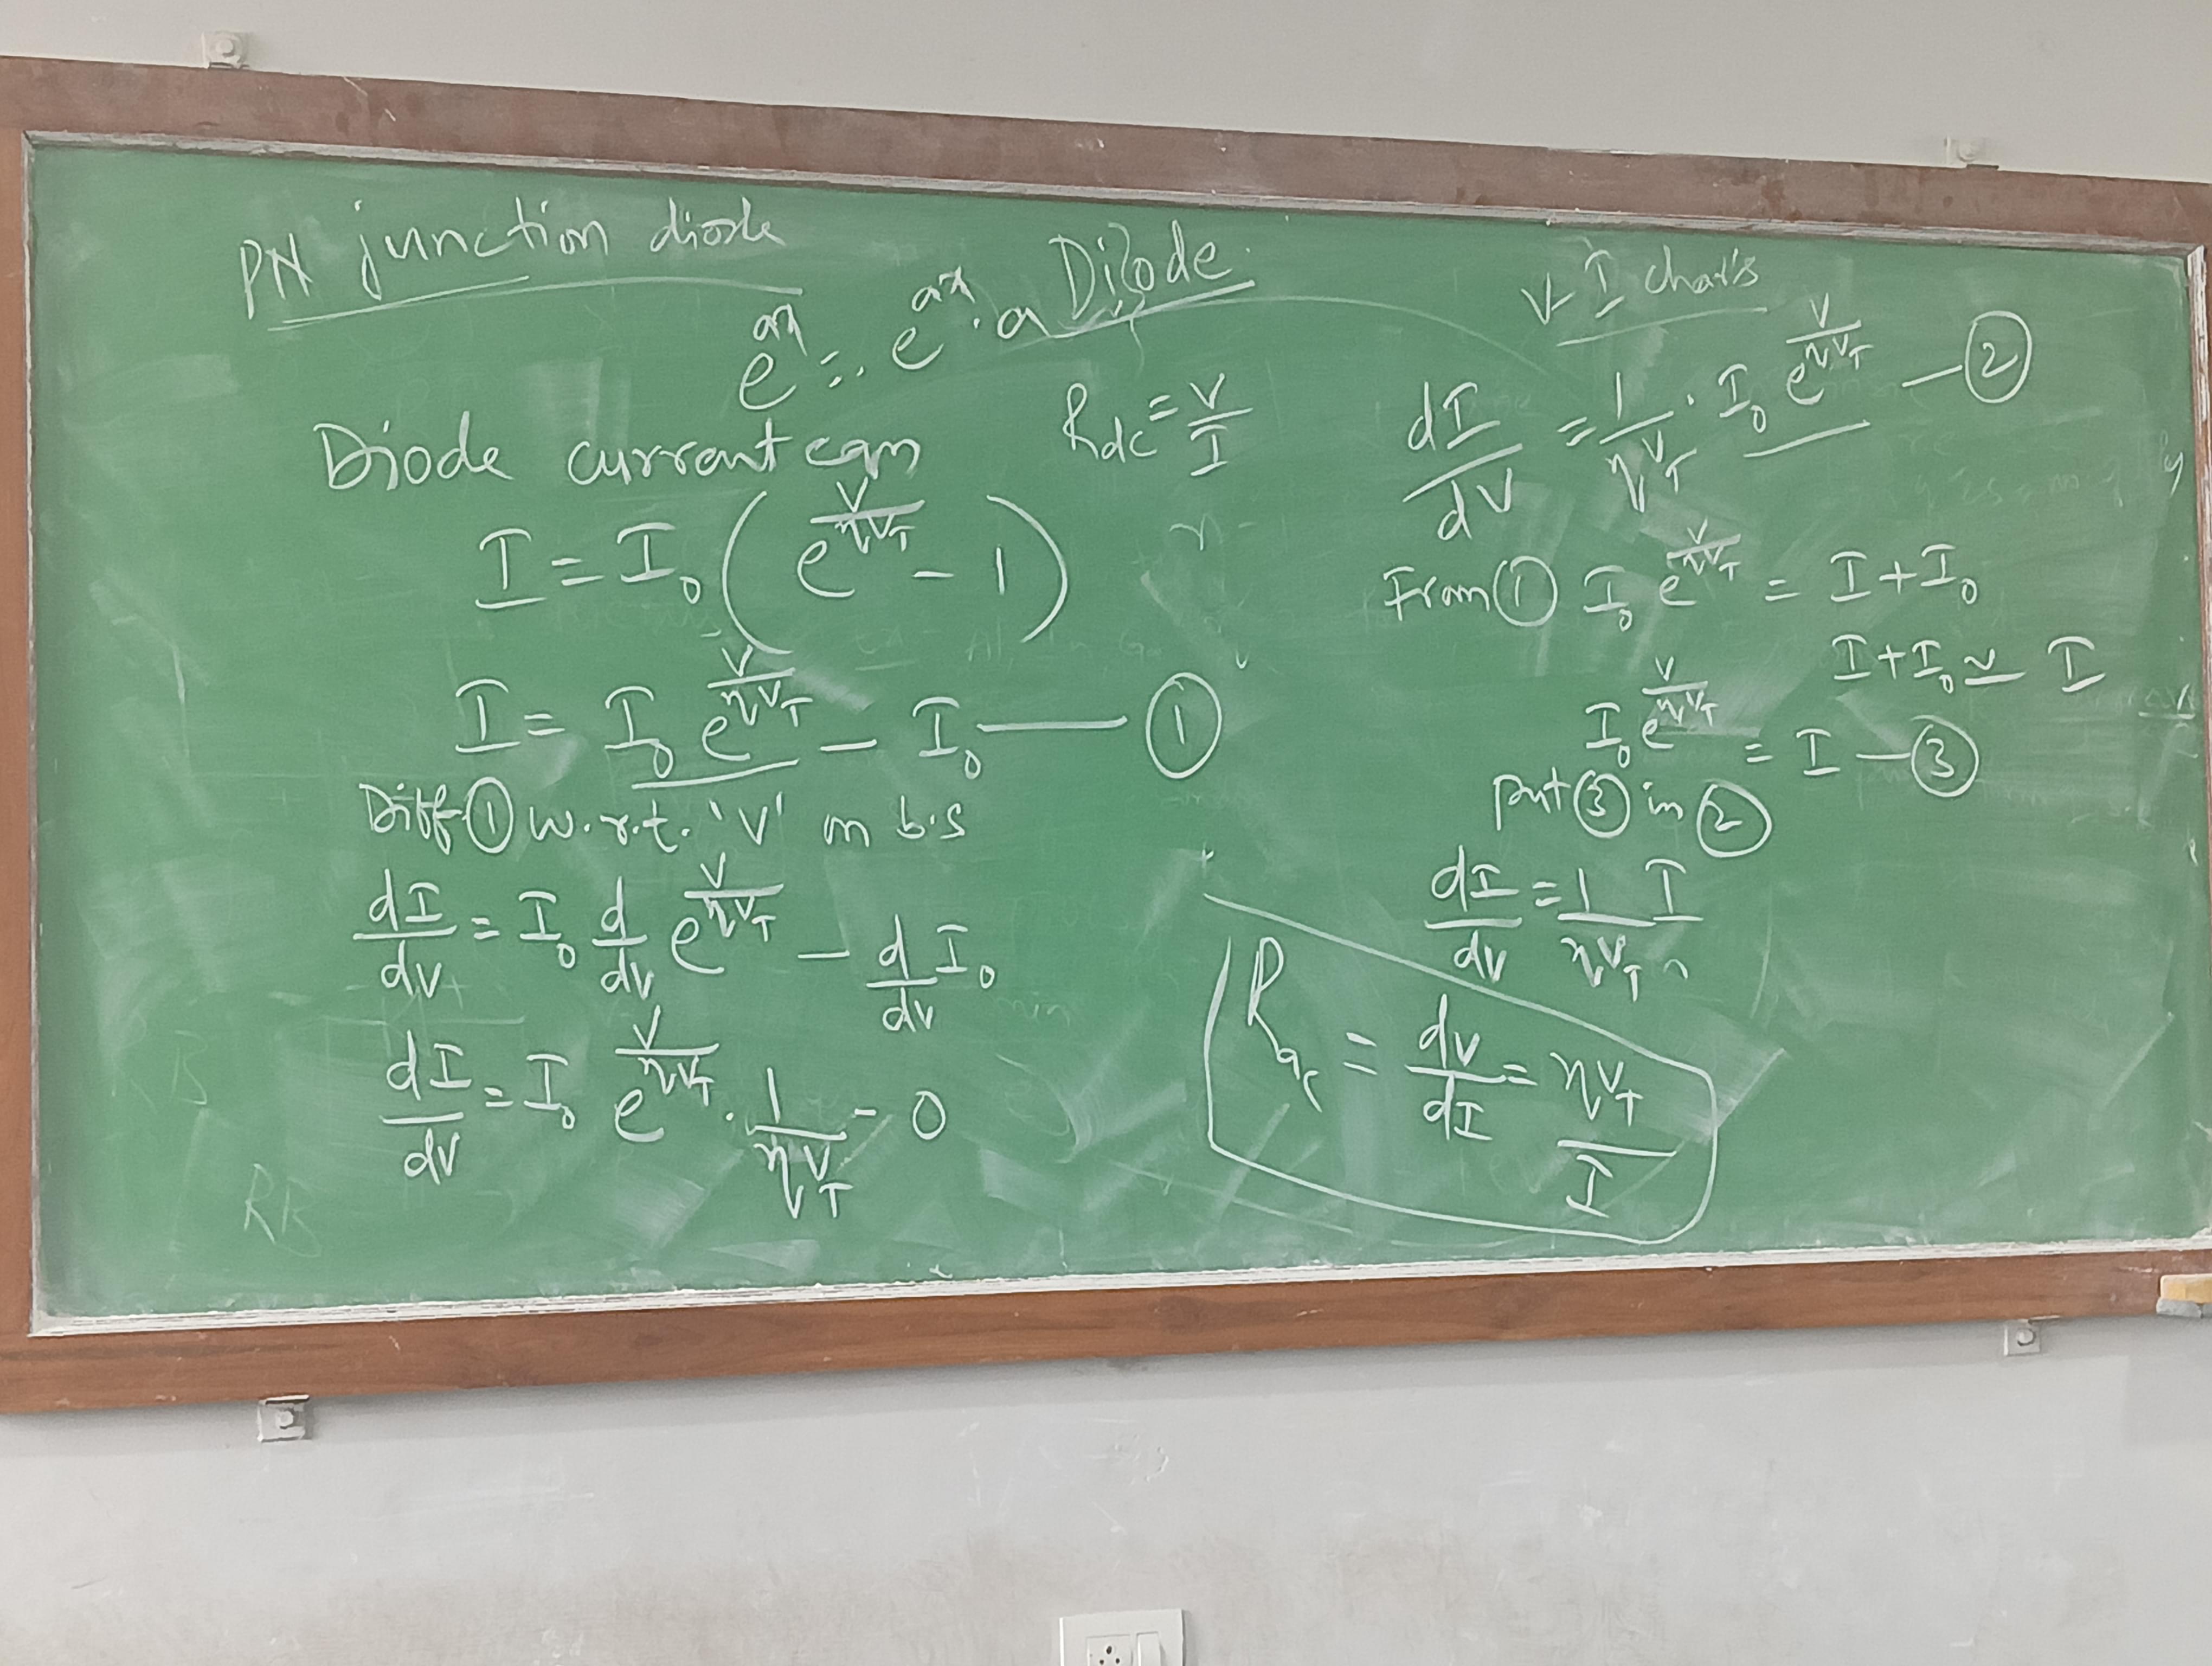 PN junction diode
Diode
V-I char's
e^ax = . e^ax . a
R_dc = V/I
Diode current eqn
I = I₀ ( e^(V/ηV_T) - 1 )
I = I₀ e^(V/ηV_T) - I₀ — ①
Diff ① w.r.t. 'V' on b.s
dI/dV = I₀ d/dV e^(V/ηV_T) - d/dV I₀
dI/dV = I₀ e^(V/ηV_T) . 1/ηV_T - 0
RB
dI/dV = 1/ηV_T . I₀ e^(V/ηV_T) — ②
From ① I₀ e^(V/ηV_T) = I + I₀
I + I₀ ≃ I
I₀ e^(V/ηV_T) = I — ③
put ③ in ②
dI/dV = 1/ηV_T I
R_ac = dV/dI = ηV_T/I